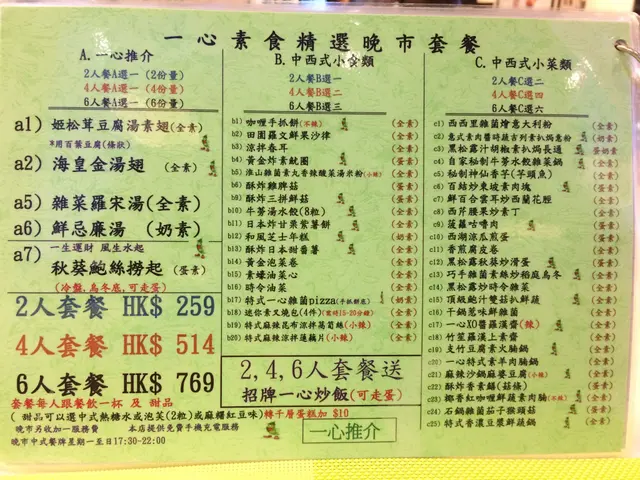 一心素食精選晚市套餐
A.一心推介
2人餐A選一 (2份量)
4人餐A選一 (4份量)
6人餐A選一 (6份量)
a1) 姬松茸豆腐湯素翅(全素)
*用百葉豆腐(條狀)
a2) 海皇金湯翅 (全素)
a5) 雜菜羅宋湯(全素)
a6) 鮮忌廉湯 (奶素)
a7) 一生運財 風生水起
秋葵鮑絲撈起 (蛋素)
(冷盤,烏冬底,可走蛋)
2人套餐 HK$ 259
4人套餐 HK$ 514
6人套餐 HK$ 769
套餐每人跟餐飲一杯 及 甜品
( 甜品可以選中式熱糖水或泡芙(2粒)或麻糬紅豆味)轉千層蛋糕加 $10
晚市另收加一服務費 本店提供免費手機充電服務
晚市中式餐牌星期一至日17:30-22:00
B.中西式小食類
2人餐B選一
4人餐B選二
6人餐B選三
b1) 咖喱手抓餅(不辣) (全素)
b2) 田園羅文鮮果沙律 (蛋素)
b3) 涼拌春耳 (全素)
b4) 黃金炸素魷圈 (蛋素)
b5) 淮山雜菌素丸香辣酸菜湯米粉(小辣)(全素)
b6) 酥炸雞脾菇 (蛋素)
b9) 酥炸三拼鮮菇 (蛋素)
b10) 牛蒡湯水餃(8粒) (全素)
b11) 日本炸甘栗紫薯餅 (全素)
b12) 和風芝士年糕 (奶素)
b13) 酥炸日本甜番薯 (全素)
b14) 黃金泡菜卷 (全素)
b15) 素蠔油菜心 (全素)
b16) 時令油菜 (全素)
b17) 特式一心雜菌pizza(手抓餅底) (奶素)
b18) 迷你素叉燒包(4件)(需時15-20分鐘) (全素)
b19) 特式麻辣昆布涼拌萵筍絲(小辣) (全素)
b20) 特式麻辣涼拌蓮藕片(小辣) (全素)
2,4,6人套餐送
招牌一心炒飯(可走蛋)
一心推介
C.中西式小菜類
2人餐C選二
4人餐C選四
6人餐C選六
c1) 西西里雜菌燴意大利粉 (全素)
c2) 意式素肉醬時蔬吉列素扒焗意粉 (奶素)
c3) 黑松露汁胡椒素扒焗長通 (蛋奶素)
c4) 自家秘制牛蒡水餃雜菜鍋 (全素)
c5) 秘制神仙香芋(芋頭魚) (全素)
c6) 百結炒東坡素肉塊 (蛋素)
c7) 鮮百合雲耳炒西蘭花脛 (全素)
c8) 西芹腰果炒素丁 (全素)
c9) 菠蘿咕嚕肉 (全素)
c10) 西湖涼瓜煎蛋 (蛋素)
c11) 香煎腐皮卷 (全素)
c12) 黑松露秋葵炒滑蛋 (蛋素)
c13) 巧手雜菌素絲炒稻庭烏冬 (全素)
c14) 黑松露炒時令雜菜 (全素)
c15) 頂級鮑汁雙菇扒鮮蔬 (全素)
c16) 干鍋惹味鮮雜菌 (全素)
c17) 一心XO醬羅漢齋(辣) (全素)
c18) 竹笙羅漢上素齋 (全素)
c19) 支竹豆腐素火腩鍋 (全素)
c20) 一心特式素羊肉腩鍋 (全素)
c21) 麻辣沙鍋麻婆豆腐(小辣) (全素)
c22) 酥炸香素鱔(菇條) (蛋素)
c23) 椰香紅咖喱鮮蔬素肉腩(不辣) (全素)
c24) 石鍋雜菌茄子猴頭菇 (蛋素)
c25) 特式香濃豆漿鮮蔬鍋 (全素)